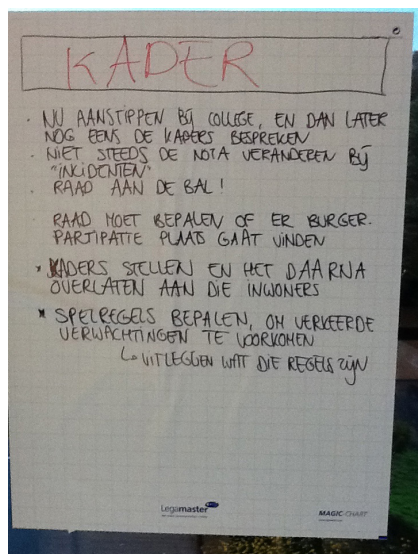 KADER
· NU AANSTIPPEN BIJ COLLEGE, EN DAN LATER
NOG EENS DE KADERS BESPREKEN
· NIET STEEDS DE NOTA VERANDEREN BIJ
"INCIDENTEN"
· RAAD AAN DE BAL!
· RAAD MOET BEPALEN OF ER BURGER-
PARTIPATIE PLAATS GAAT VINDEN
* KADERS STELLEN EN HET DAARNA
OVERLATEN AAN DIE INWONERS
* SPELREGELS BEPALEN, OM VERKEERDE
VERWACHTINGEN TE VOORKOMEN
↳ UITLEGGEN WAT DIE REGELS ZIJN
Legamaster
MAGIC-CHART